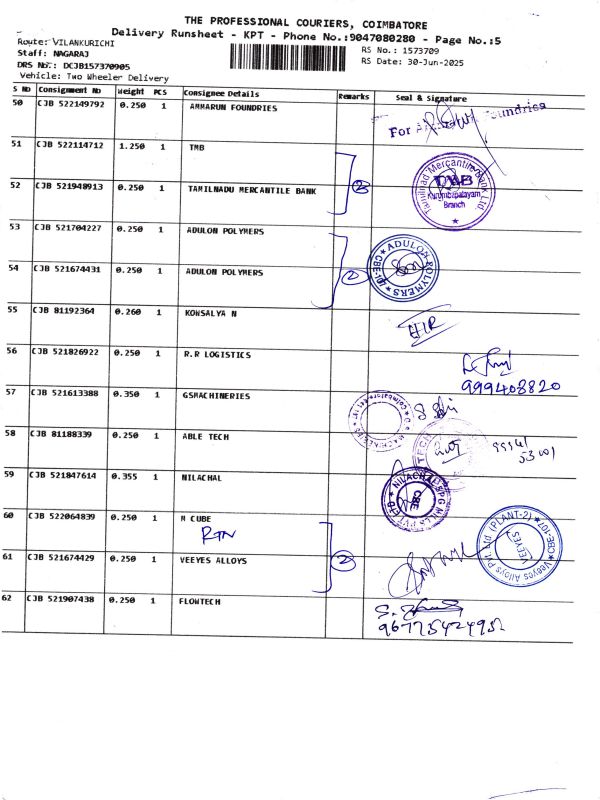 THE PROFESSIONAL COURIERS, COIMBATORE
Delivery Runsheet - KPT - Phone No.:9047080280 - Page No.:5
Route: VILANKURICHI
Staff: NAGARAJ
DRS No.: DCJB157370905
Vehicle: Two Wheeler Delivery
RS No.: 1573709
RS Date: 30-Jun-2025
S No Consignment No Weight PCS Consignee Details Remarks Seal & Signature
50 CJB 522149792 0.250 1 AMMARUN FOUNDRIES
For Foundries
51 CJB 522114712 1.250 1 TMB
52 CJB 521948913 0.250 1 TAMILNADU MERCANTILE BANK 2
Tamilnad Mercantile Bank Ltd
TMB
Kurumbapalayam
Branch
53 CJB 521704227 0.250 1 ADULON POLYMERS
54 CJB 521674431 0.250 1 ADULON POLYMERS 2
ADULON POLYMERS
55 CJB 81192364 0.260 1 KOWSALYA N
56 CJB 521826922 0.250 1 R.R LOGISTICS
999408820
57 CJB 521613388 0.350 1 GSMACHINERIES
58 CJB 81188339 0.250 1 ABLE TECH
TECH
99941
53001
59 CJB 521847614 0.355 1 NILACHAL
NILACHAL SPG MILLS PVT LTD
CBE
60 CJB 522064839 0.250 1 M CUBE
RTN
61 CJB 521674429 0.250 1 VEEYES ALLOYS 2
Veeyes Alloys Pvt. Ltd (PLANT-2) CBE-107
VEEYES
62 CJB 521907438 0.250 1 FLOWTECH